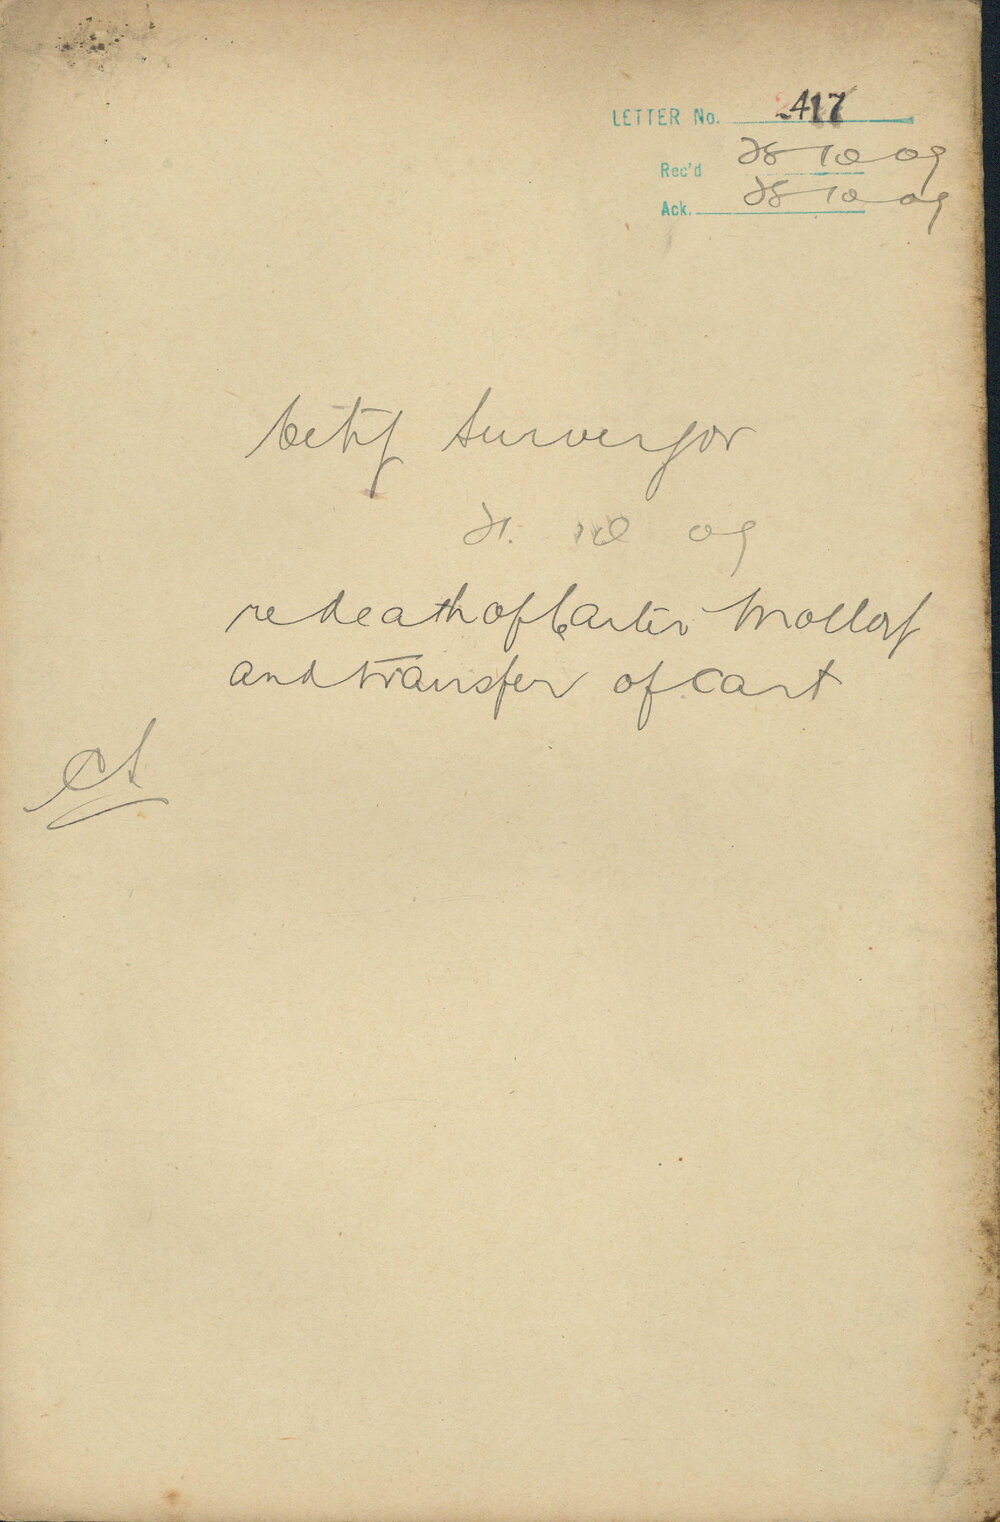 LETTER No. 2417
Rec'd 28 10 09
Ack. 28 10 09
City Surveyor
21. 10 09
re death of Carter Molloy
and transfer of cart